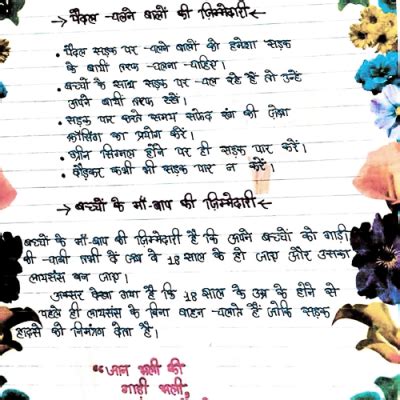 → पैदल चलने वालों की ज़िम्मेदारी ←
• पैदल सड़क पर चलने वालों को हमेशा सड़क
के बायीं तरफ चलना चाहिए।
• बच्चों के साथ सड़क पर चल रहे हैं तो उन्हें
अपने बायीं तरफ रखें।
• सड़क पार करते समय सफ़ेद रंग की ज़ेब्रा
क्रॉसिंग का प्रयोग करें।
• ग्रीन सिग्नल होने पर ही सड़क पार करें।
• दौड़कर कभी भी सड़क पार न करें।
→ बच्चों के माँ-बाप की ज़िम्मेदारी ←
बच्चों के माँ-बाप की ज़िम्मेदारी है कि अपने बच्चों को गाड़ी
की चाबी तभी दें जब वे 18 साल के हो जाए और उसका
लायसेंस बन जाए।
अक्सर देखा गया है कि 18 साल के उम्र के होने से
पहले ही लायसेंस के बिना वाहन चलाते हैं जोकि सड़क
हादसे को निमंत्रण देता है।
"जान भली की
गाड़ी भली,